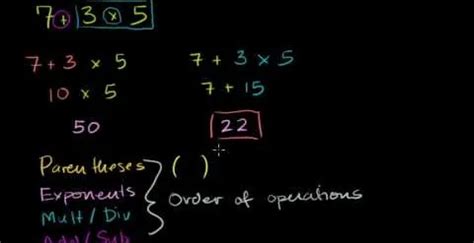 7 + 3 × 5
7 + 3 × 5
10 × 5
50
7 + 3 × 5
7 + 15
22
Parentheses ( )
Exponents
Mult/Div
Add/Sub
Order of operations